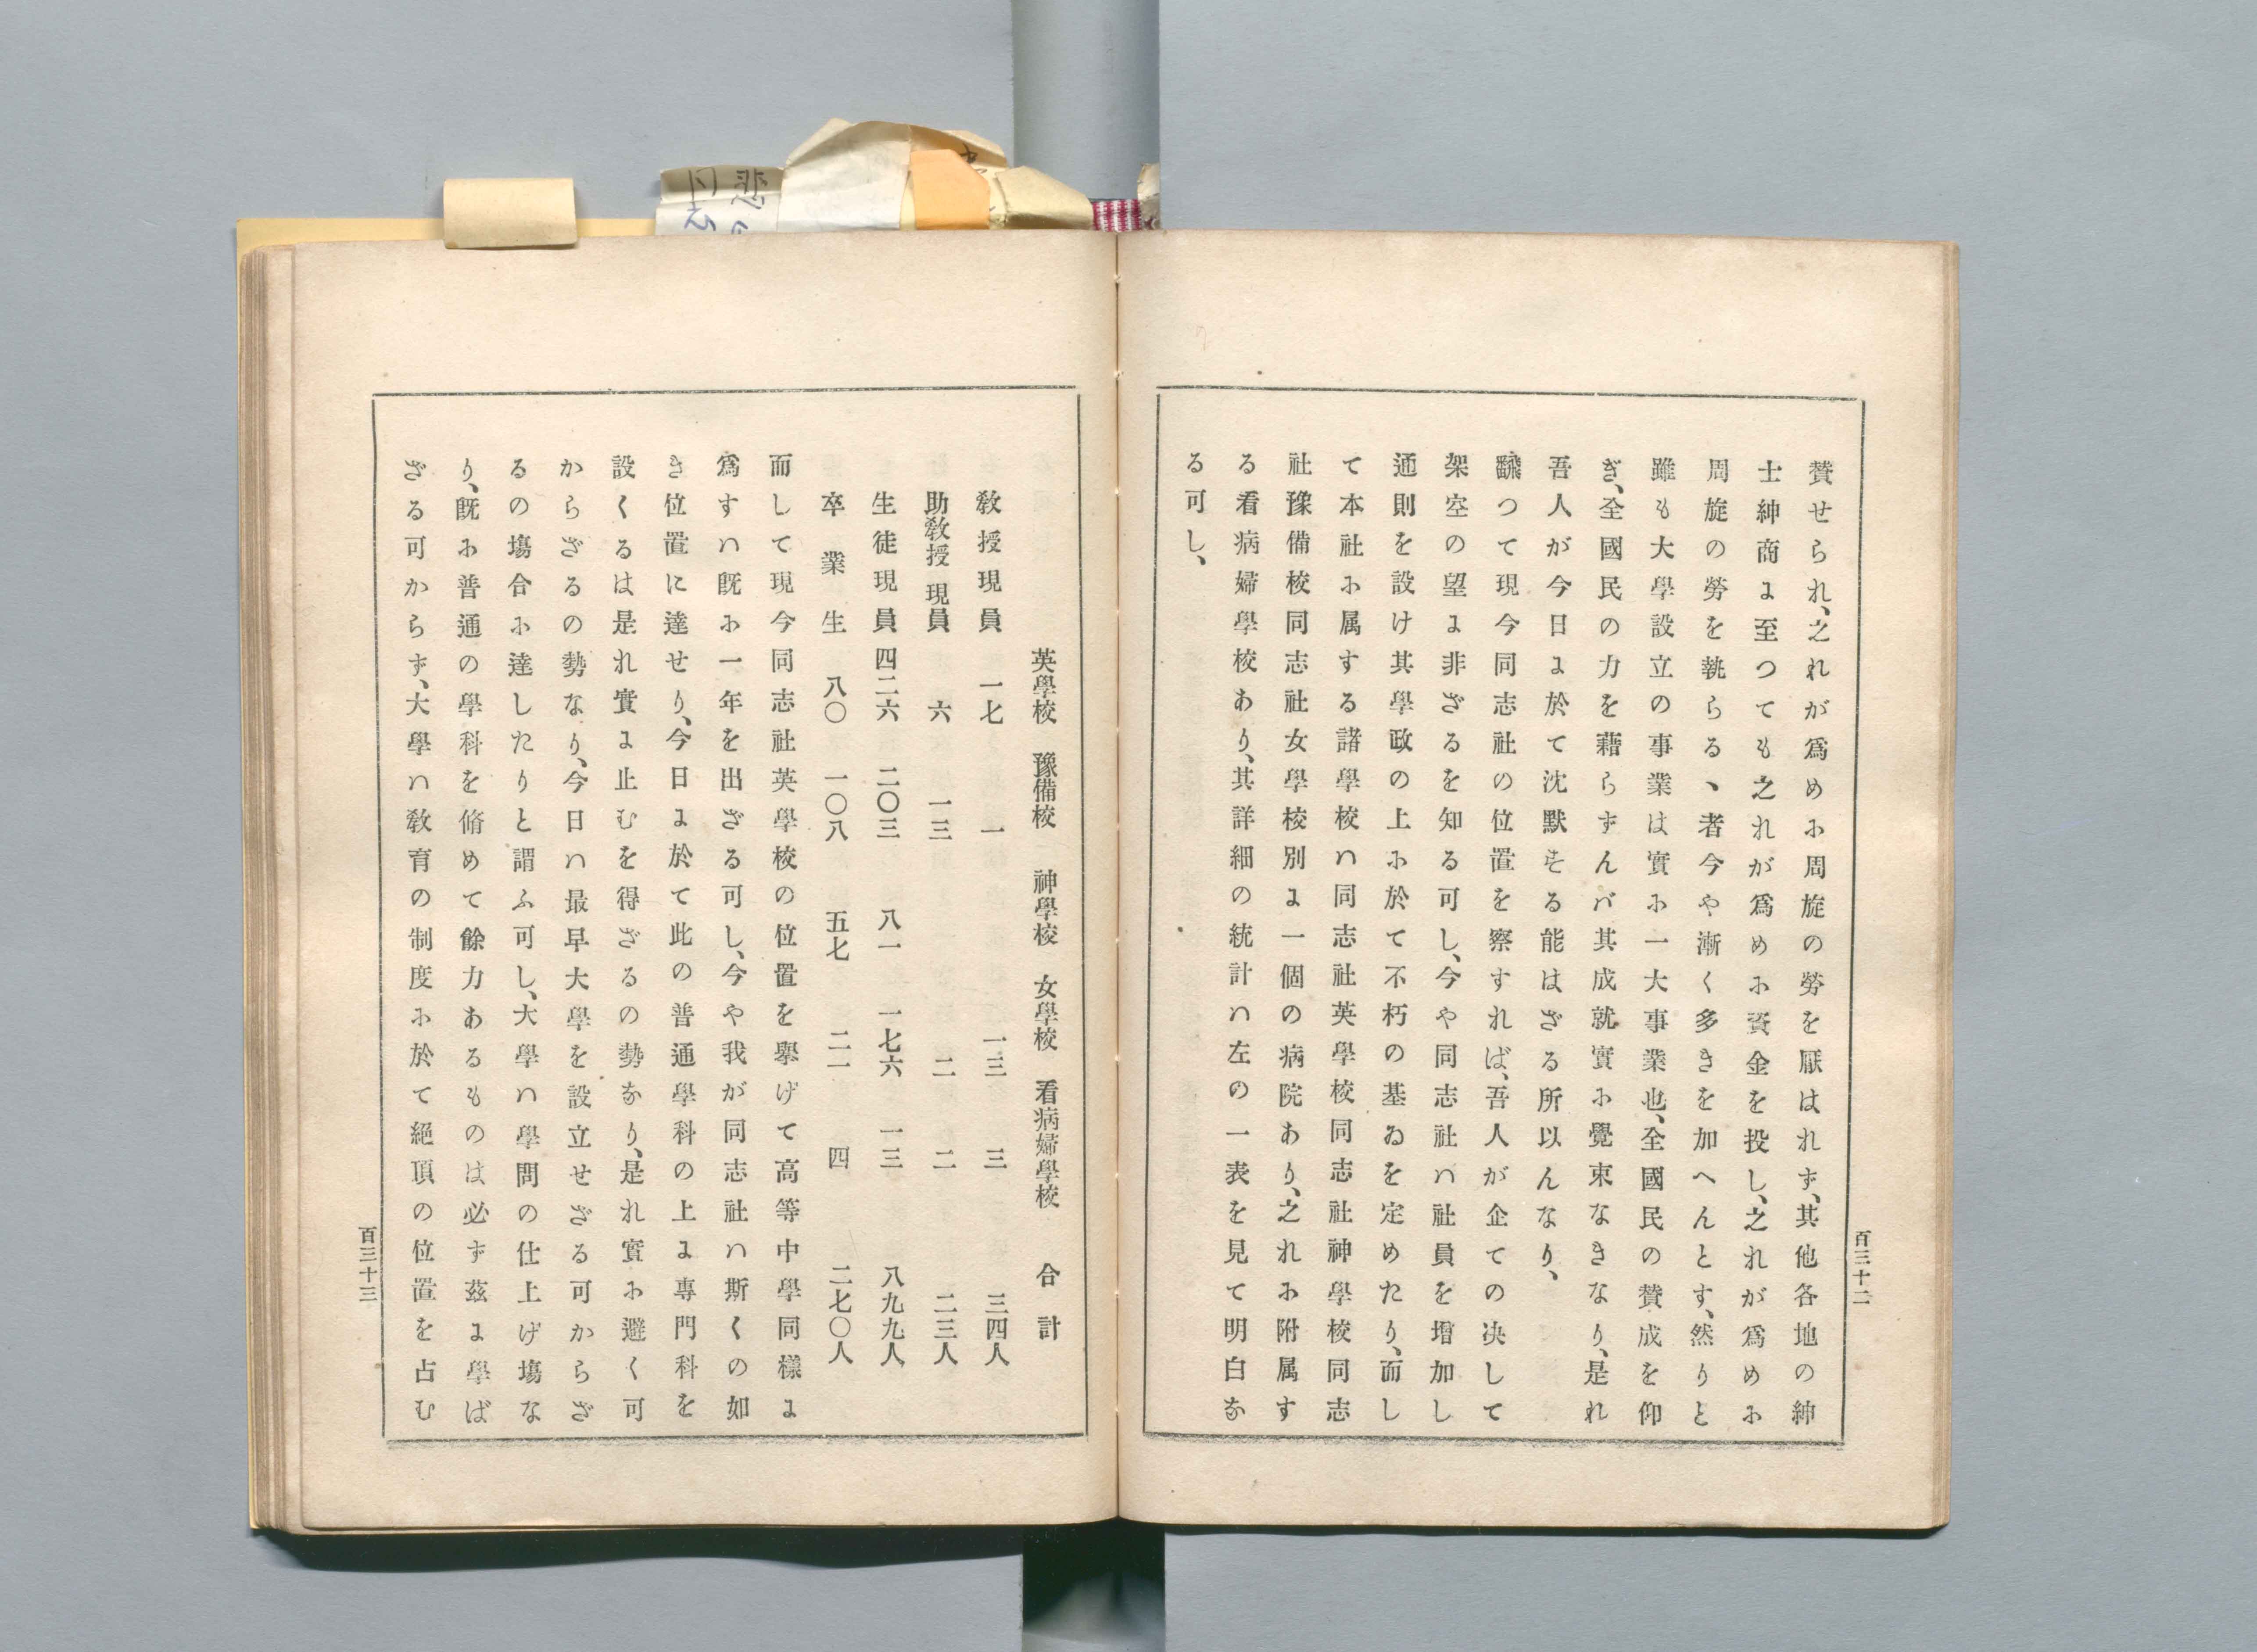 賛せられ、之れが爲めに周旋の勞を厭はれず、其他各地の紳
士紳商に至つても之れが爲めに資金を投し、之れが爲めに
周旋の勞を執らるゝ者今や漸く多きを加へんとす、然りと
雖も大學設立の事業は實に一大事業也、全國民の賛成を仰
ぎ、全國民の力を藉らずんバ其成就實に覺束なきなり、是れ
吾人が今日に於て沈默をる能はざる所以んなり、
飜つて現今同志社の位置を察すれば、吾人が企ての决して
架空の望に非ざるを知る可し、今や同志社ハ社員を増加し
通則を設け其學政の上に於て不朽の基ゐを定めたり、而し
て本社に属する諸學校ハ同志社英學校同志社神學校同志
社豫備校同志社女學校別に一個の病院あり、之れに附属す
る看病婦學校あり、其詳細の統計ハ左の一表を見て明白な
る可し、
百三十二
英學校 豫備校 神學校 女學校 看病婦學校 合計
教授現員 一七 一 一三 三 三四人
助教授現員 六 一三 二 二 二三人
生徒現員 四二六 二〇三 八一 一七六 一三 八九九人
卒業生 八〇 一〇八 五七 二一 四 二七〇人
而して現今同志社英學校の位置を擧げて高等中學同樣に
爲すハ既に一年を出ざる可し、今や我が同志社ハ斯くの如
き位置に達せり、今日に於て此の普通學科の上に專門科を
設くるは是れ實に止むを得ざるの勢なり、是れ實に避く可
からざるの勢なり、今日ハ最早大學を設立せざる可からざ
るの塲合に達したりと謂ふ可し、大學ハ學問の仕上げ塲な
り、既に普通の學科を脩めて餘力あるものは必ず茲に學ば
ざる可からず、大學ハ敎育の制度に於て絕頂の位置を占む
百三十三